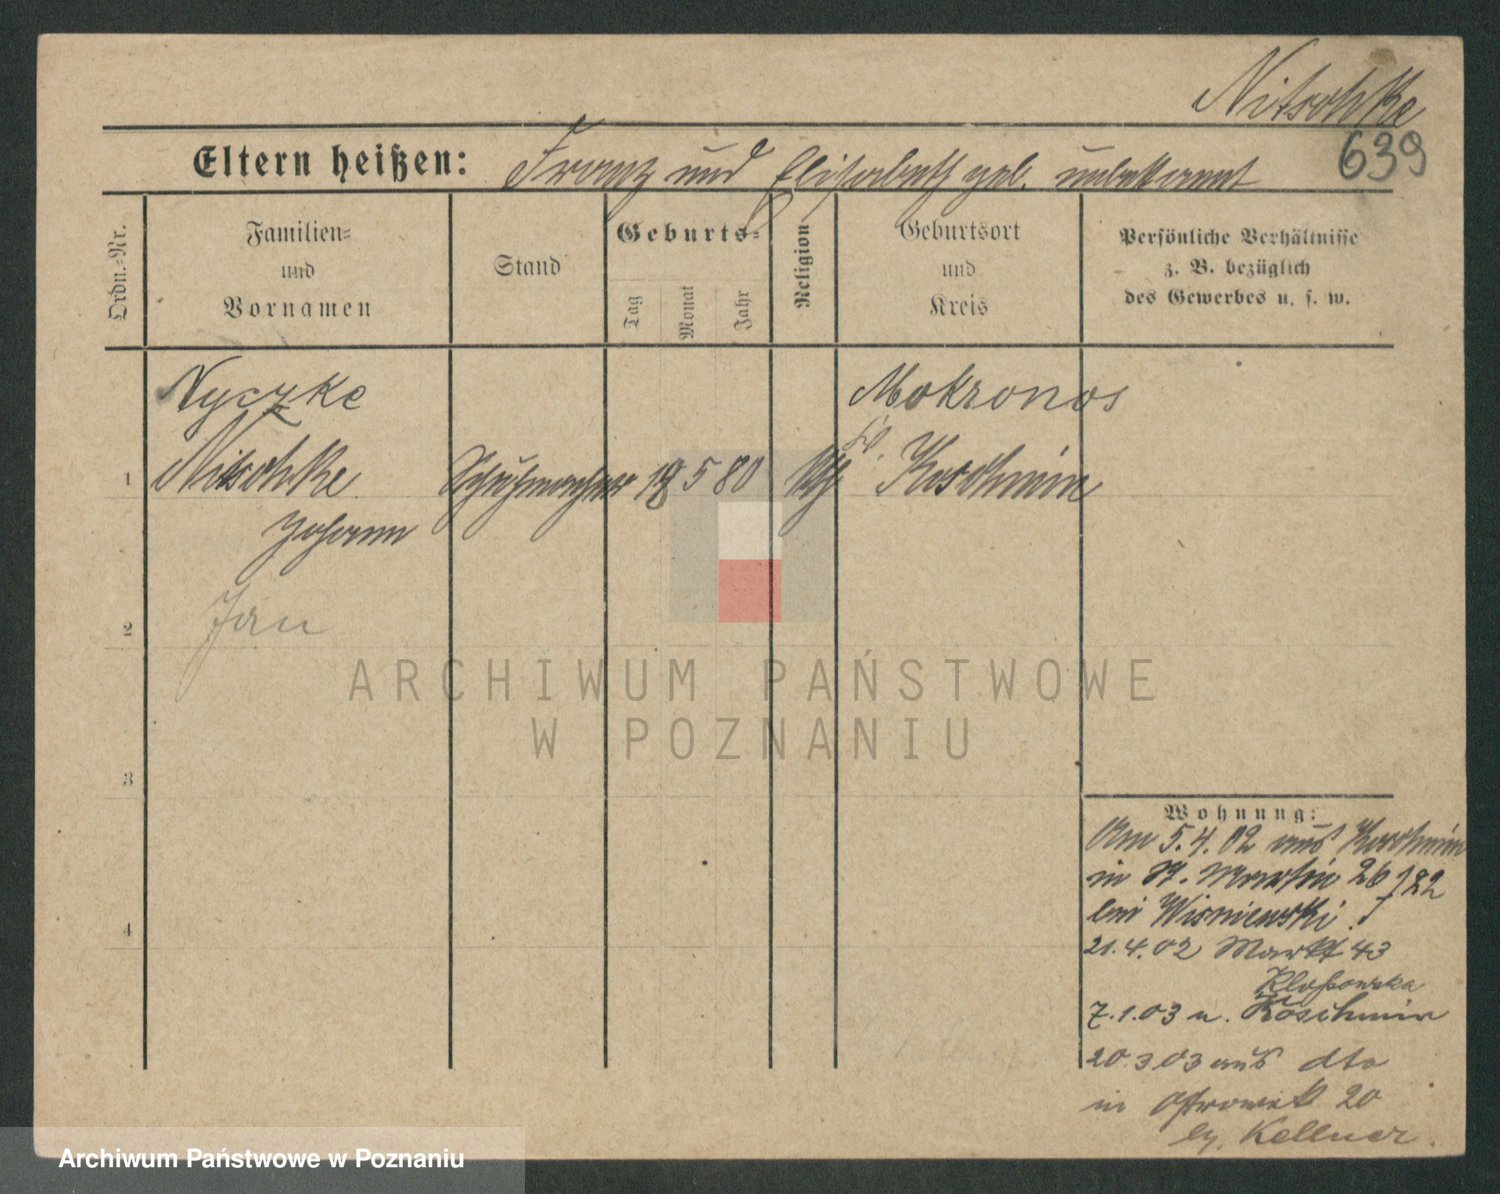 Nitschke
639
Eltern heißen: Franz und Elisabeth geb. unbekannt
Ordn.=Nr.
Familien=
und
Vornamen
Stand
Geburts=
Tag
Monat
Jahr
Religion
Geburtsort
und
Kreis
Persönliche Verhältnisse
z. B. bezüglich
des Gewerbes u. s. w.
Nyczke
Mokronos
1 Nitschke Schuhmacher 18 5 80 kth Koschmin
Johann
2 Jan
3
4
ARCHIWUM PAŃSTWOWE
W POZNANIU
Wohnung:
Am 5.4.02 aus Koschmin
in St. Martin 26
bei Wisniewski
21.4.02 Markt 43
7.1.03 n. Koschmin
20.3.03 aus dto
in Ostrowek 20
Kellner.
Archiwum Państwowe w Poznaniu